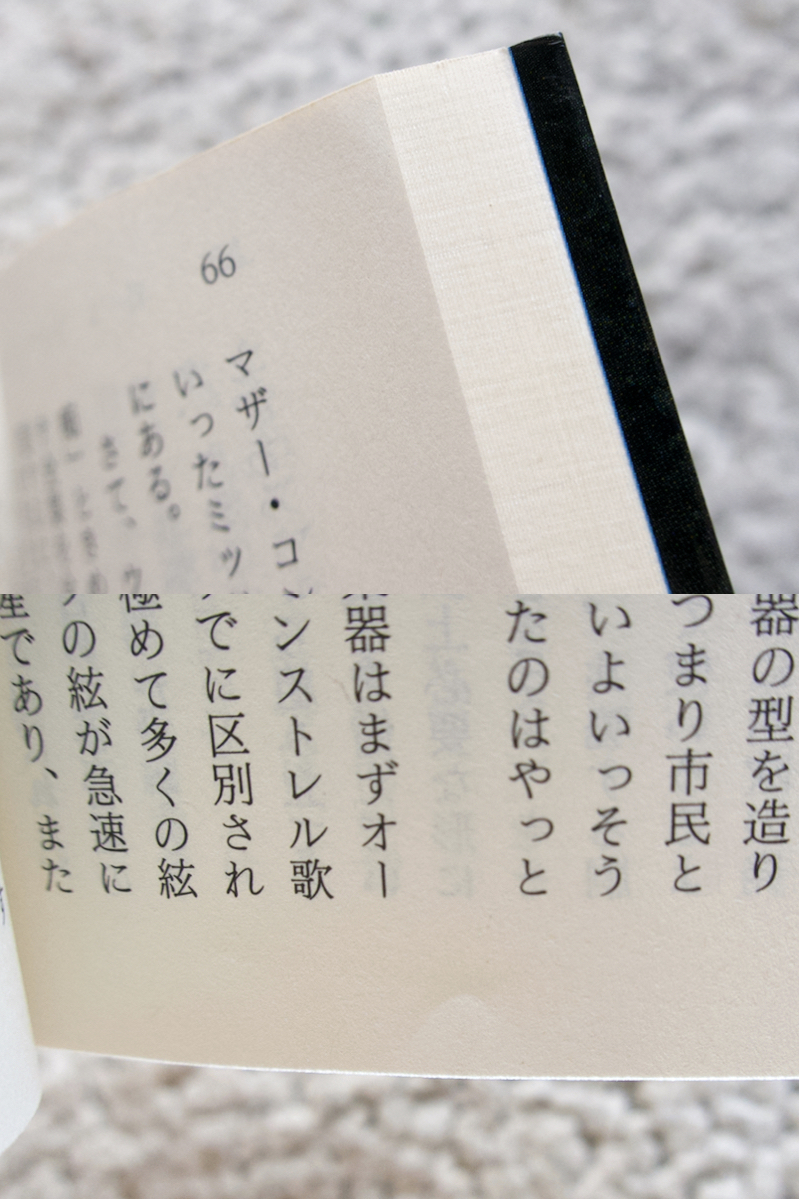 66
マザー・コ
いったミッ
にある。
さて、ウ
器の型を造り
つまり市民と
いよいっそう
たのはやっと
器はまずオー
ンストレル歌
でに区別され
極めて多くの絃
の絃が急速に
であり、また